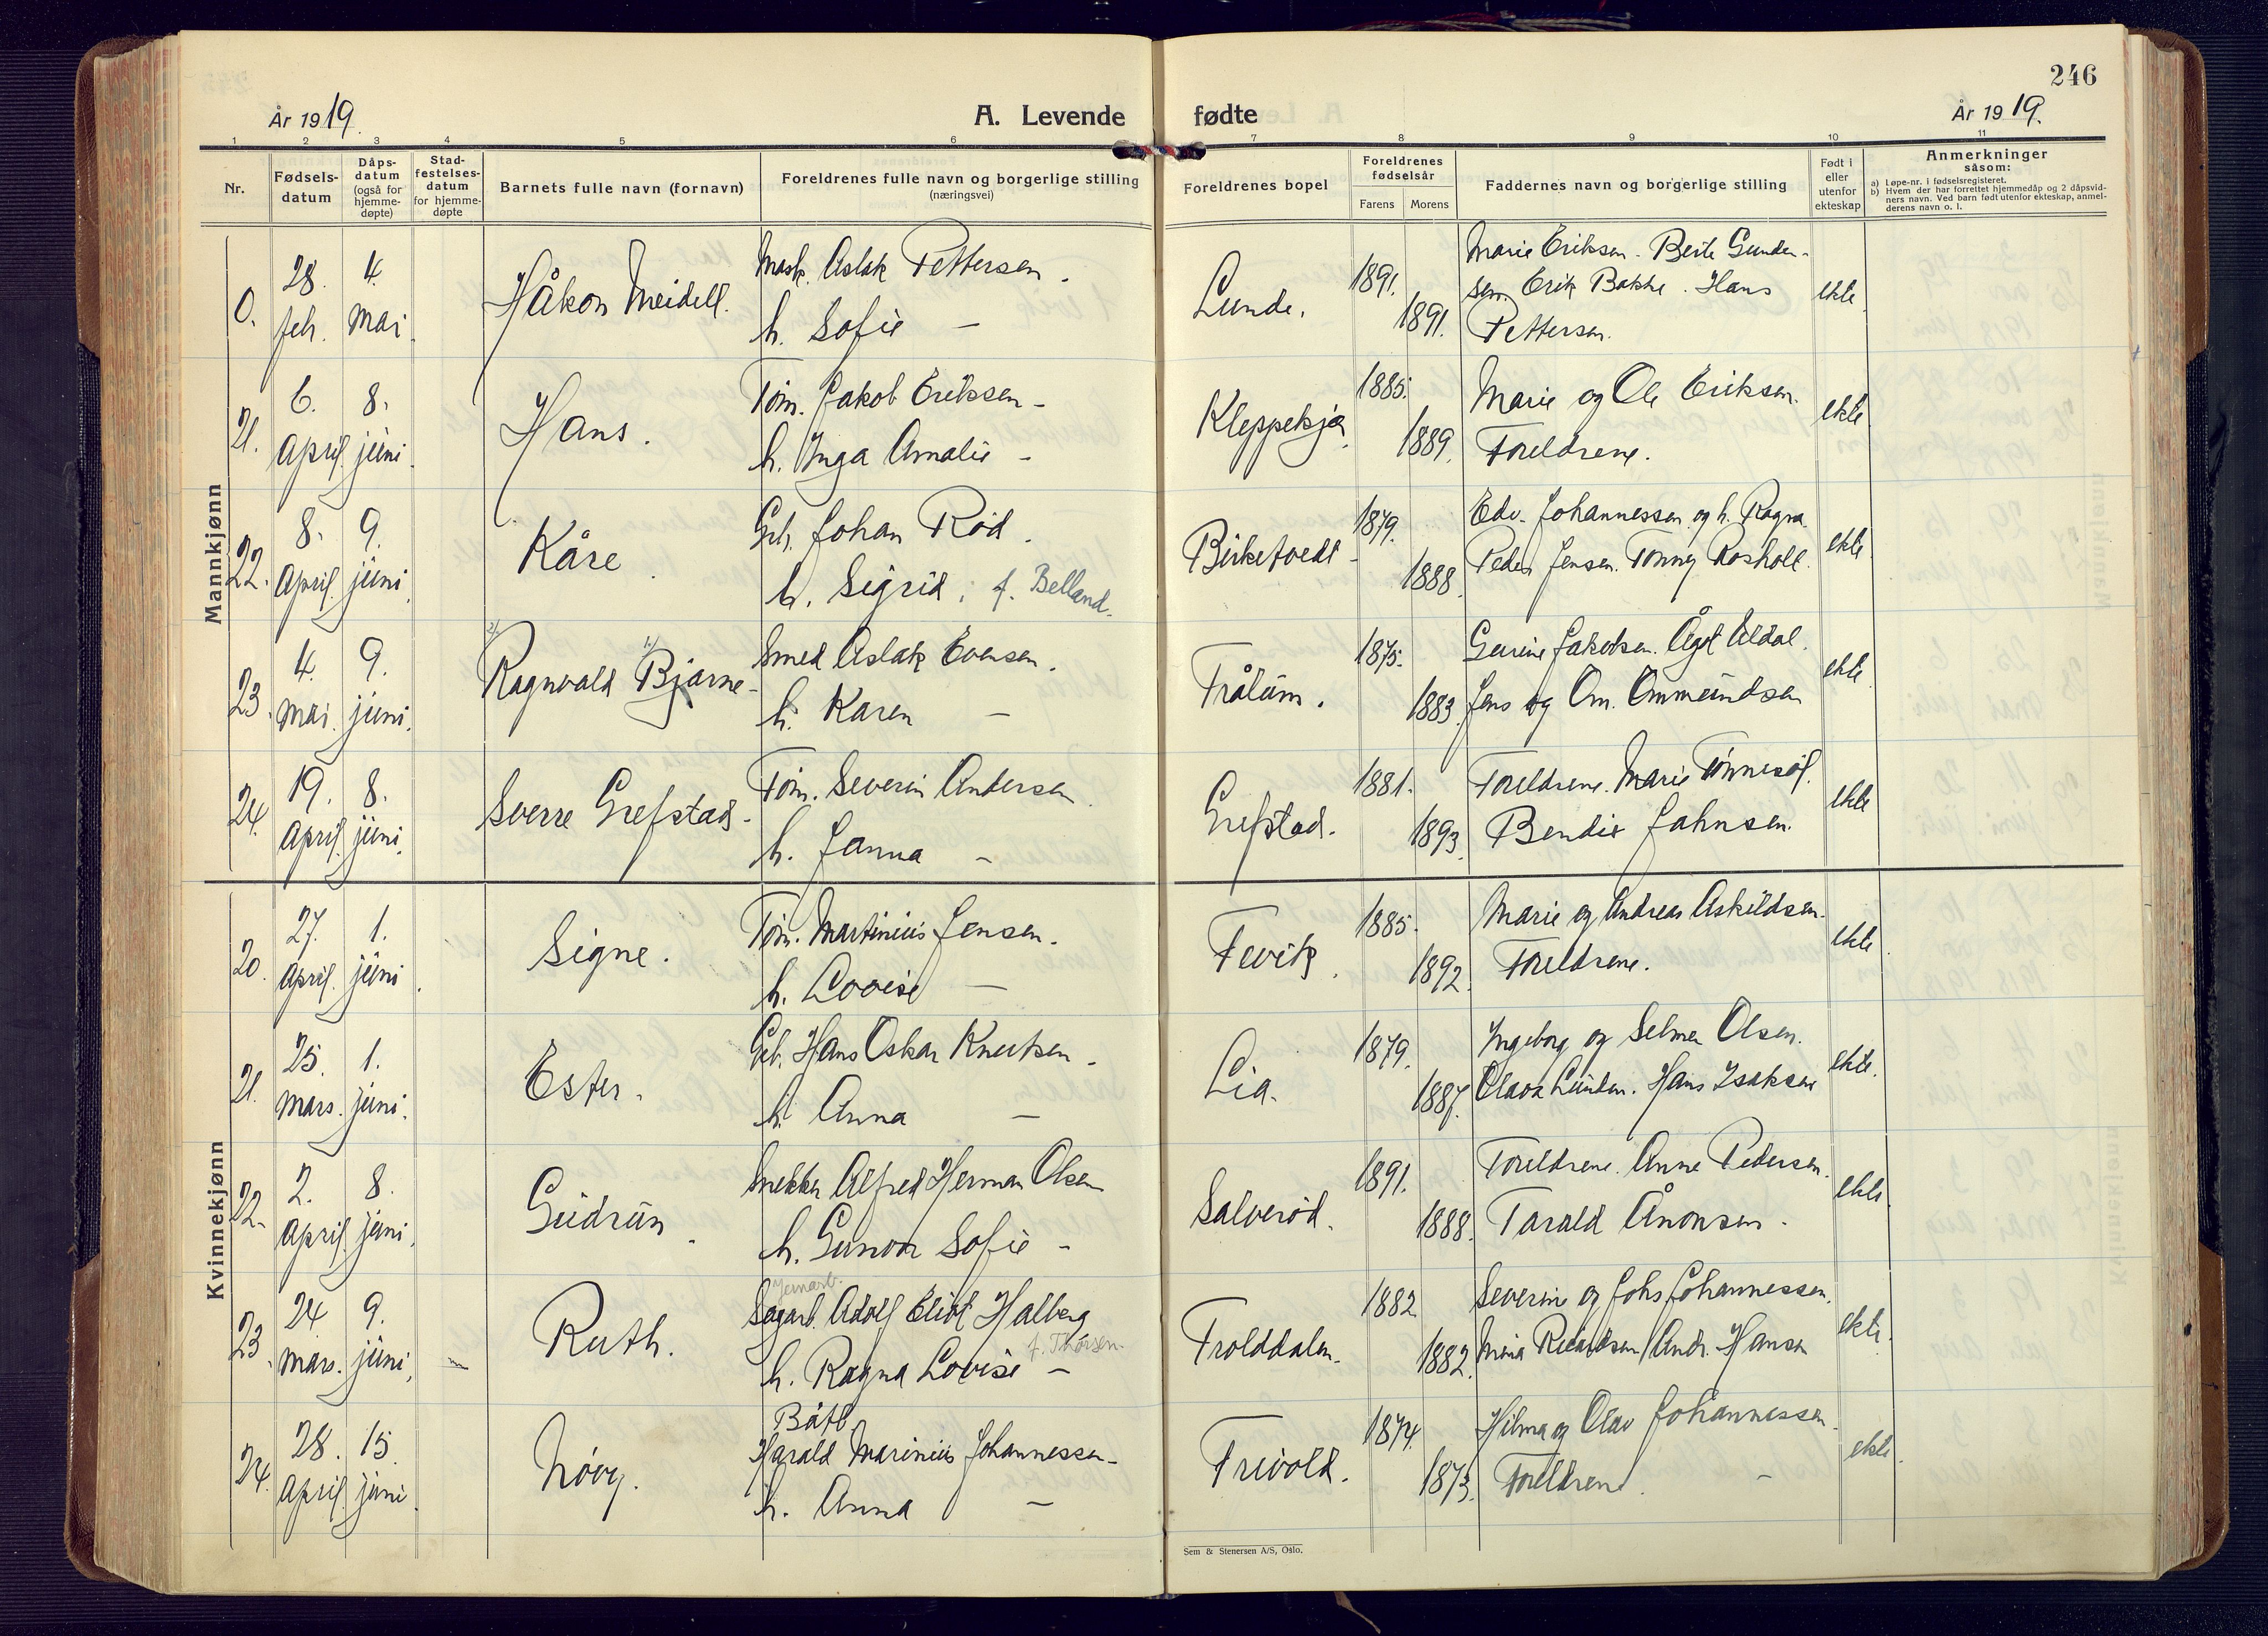 246
År 1919.
A. Levende fødte
År 1919.
1 2 3 4 5 6 7 8 9 10 11
Nr.
Fødsels-
datum
Dåps-
datum
(også for
hjemme-
døpte)
Stad-
festelses-
datum
for hjemme-
døpte
Barnets fulle navn (fornavn)
Foreldrenes fulle navn og borgerlige stilling
(næringsvei)
Foreldrenes bopel
Foreldrenes
fødselsår
Farens Morens
Faddernes navn og borgerlige stilling
Født i
eller
utenfor
ekteskap
Anmerkninger
såsom:
a) Løpe-nr. i fødselsregisteret.
b) Hvem der har forrettet hjemmedåp og 2 dåpsvid-
ners navn. Ved barn født utenfor ekteskap, anmel-
derens navn o. l.
Mannkjønn
0. 28. feb. 4. mai. Håkon Meidell.
Mask. Aslak Pettersen.
h. Sofie –
Lunde. 1891. 1891.
Marie Eriksen. Berte Gunder-
sen. Erik Bakke. Hans
Pettersen.
ekte.
21. 6. April. 8. juni. Hans.
Tøm. Jakob Eriksen –
h. Inga Amalie –
Kleppekjær. 1885. 1889.
Marie og Ole Eriksen.
Foreldrene.
ekte
22. 8. April. 9. juni. Kåre.
Grb. Johan Rød.
h. Sigrid, f. Belland.
Birketvedt – 1879. 1888.
Edv. Johannessen og h. Ragna.
Peder Jensen. Tonny Rosholt.
ekte
23. 4. mai. 9. juni. 2/ Ragnvald 1/ Bjarne –
Smed Aslak Evensen.
h. Karen –
Trålum. 1875. 1883.
Gurine Jakobsen. Ågot Aldal.
Jens og Om. Ommundsen
ekte
24. 19. April. 8. juni. Sverre Grefstad –
Tøm. Severin Andersen
h. Janna –
Grefstad. 1881. 1893.
Foreldrene. Marie Tønnesøl.
Bendix Jahnsen.
ekte
Kvinnekjønn
20. 27. April. 1. juni. Signe.
Tøm. Martinius Jensen.
h. Lovise –
Fevik. 1885. 1892.
Marie og Andreas Askildsen.
Foreldrene.
ekte
21. 25. Mars. 1. juni. Ester.
Grb. Hans Oskar Knutsen –
h. Anna –
Lia. 1879. 1887.
Ingeborg og Selmer Olsen.
Olava Lunden. Hans Isaksen
ekte.
22. 2. April. 8. juni. Gudrun.
Snekker Alfred Herman Olsen
h. Gunvor Sofie –
Salverød. 1891. 1888.
Foreldrene. Anne Pedersen.
Tarald Ånonsen.
ekte
23. 24. Mars. 9. juni. Ruth.
Jernarb.
Sagarb. Adolf Eliot Halberg
f. Thorsen.
h. Ragna Lovise –
Trolddalen. 1882 1882.
Severine og Johs Johannessen.
Mina Rikardsen / Andr. Hansen
ekte.
24. 28. April. 15. juni. Nøvy.
Båtb.
Harald Marinius Johannessen –
h. Anna –
Frivold. 1874. 1873.
Hilma og Olav Johannessen.
Foreldrene. –
ekte.
Sem & Stenersen A/S, Oslo.